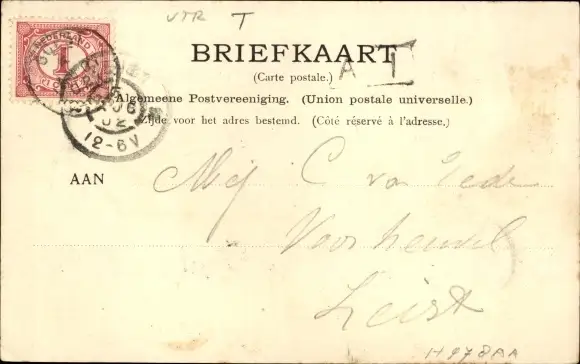 VTR T
NEDERLAND
1
BRIEFKAART
(Carte postale.)
A T
Algemeene Postvereeniging. (Union postale universelle.)
Zijde voor het adres bestemd. (Côté réservé à l'adresse.)
02
12-6V
AAN
Mej C van Eeden
Voorheuvel
Zeist
H978AA